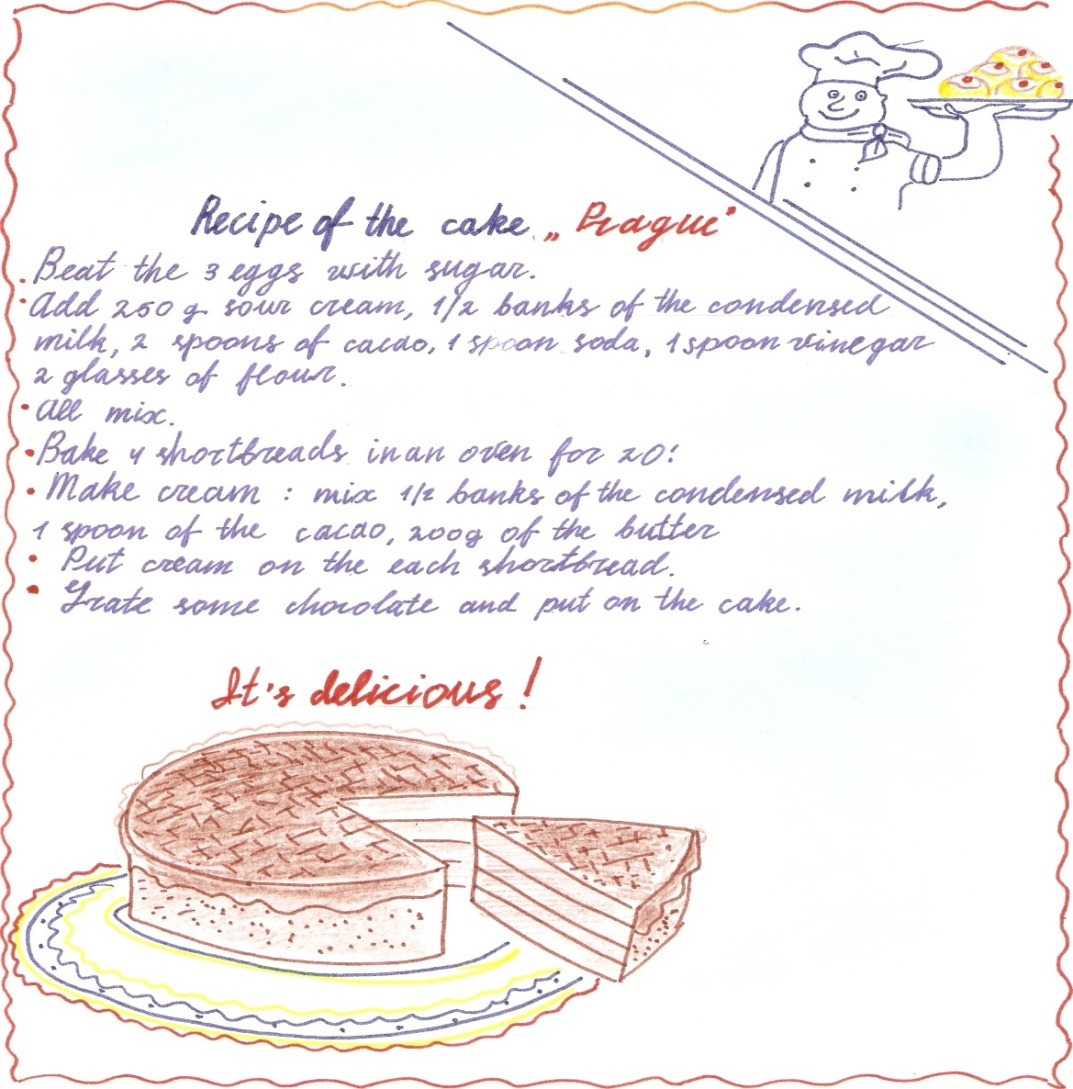 Recipe of the cake „Prague"
· Beat the 3 eggs with sugar.
· Add 250 g sour cream, 1/2 banks of the condensed
milk, 2 spoons of cacao, 1 spoon soda, 1 spoon vinegar
2 glasses of flour.
· All mix.
· Bake 4 shortbreads in an oven for 20!
· Make cream : mix 1/2 banks of the condensed milk,
1 spoon of the cacao, 200g of the butter
· Put cream on the each shortbread.
· Grate some chocolate and put on the cake.
It's delicious!